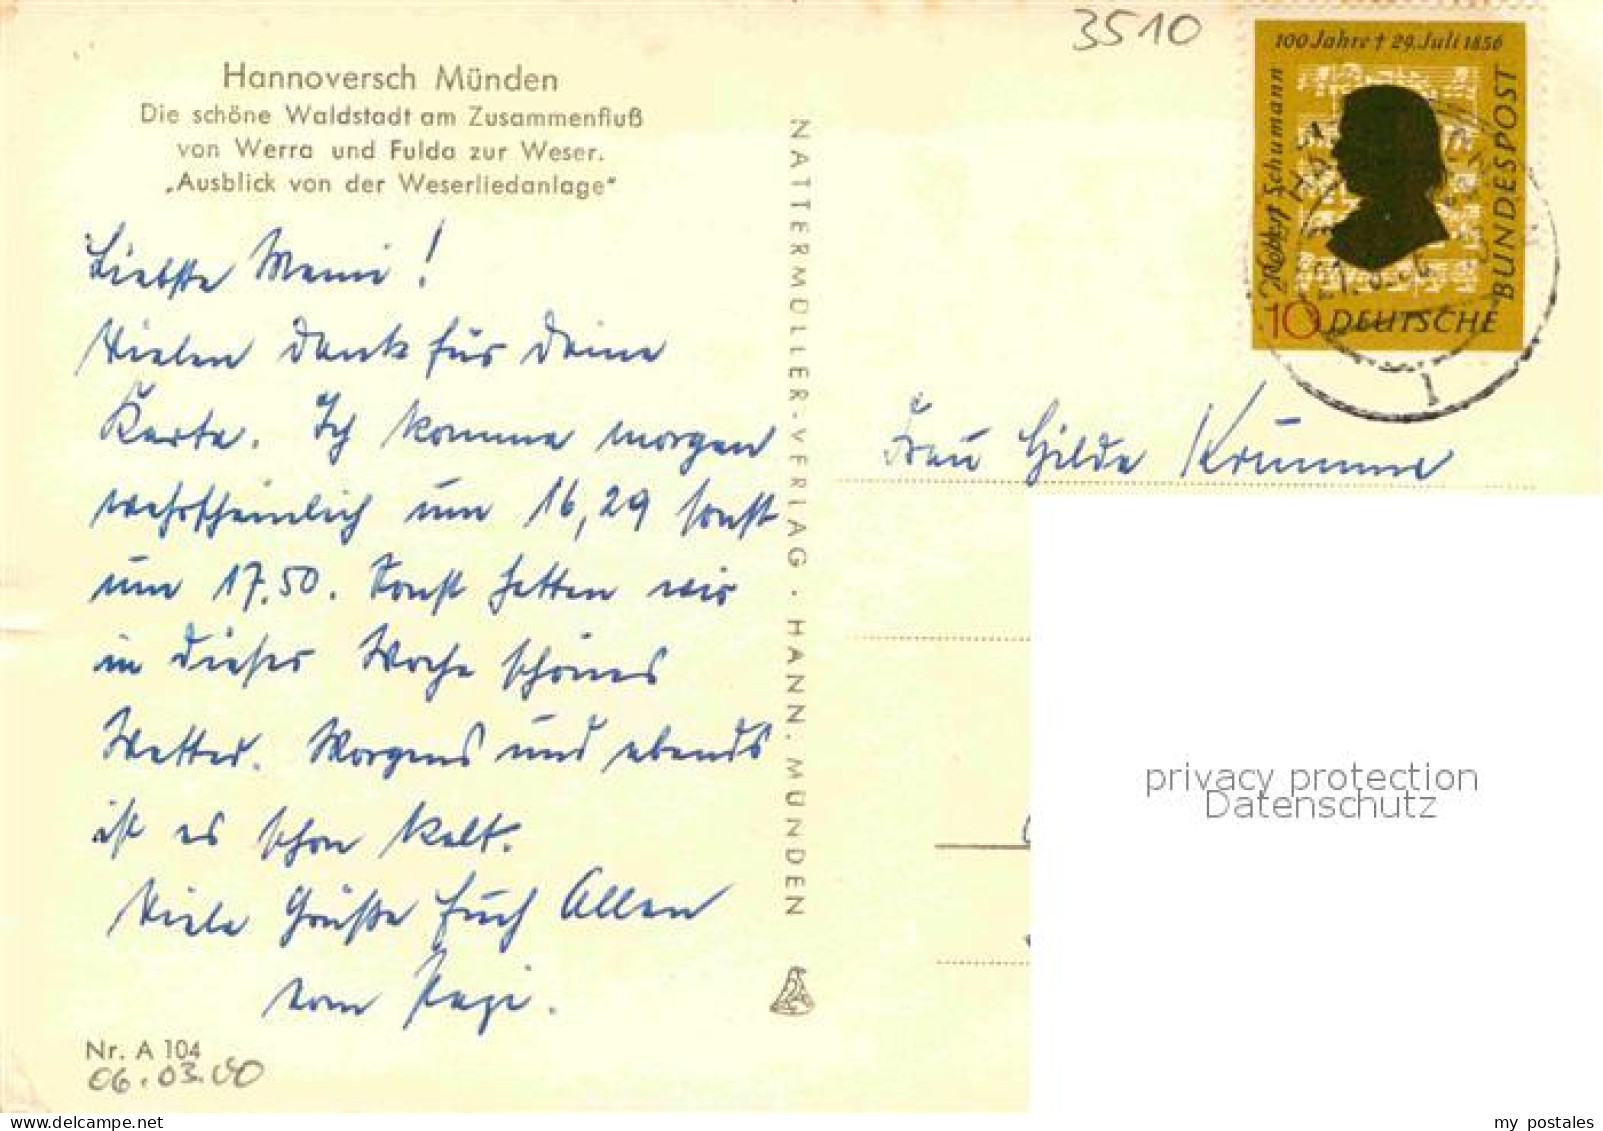 3510
100 Jahre † 29. Juli 1856
Robert Schumann
BUNDESPOST
10 DEUTSCHE
1
Hannoversch Münden
Die schöne Waldstadt am Zusammenfluß
von Werra und Fulda zur Weser.
„Ausblick von der Weserliedanlage"
Liebste Mami!
Vielen Dank für Deine
Karte. Ich komme morgen
wahrscheinlich um 16,29 sonst
um 17.50. Sonst hatten wir
in dieser Woche schönes
Wetter. Morgens und abends
ist es schon kalt.
Viele Grüße Euch Allen
vom Papi.
Nr. A 104
06.03.00
NATTERMÜLLER-VERLAG · HANN. MÜNDEN
Frau Hilde Krumme
privacy protection
Datenschutz
www.delcampe.net
my postales